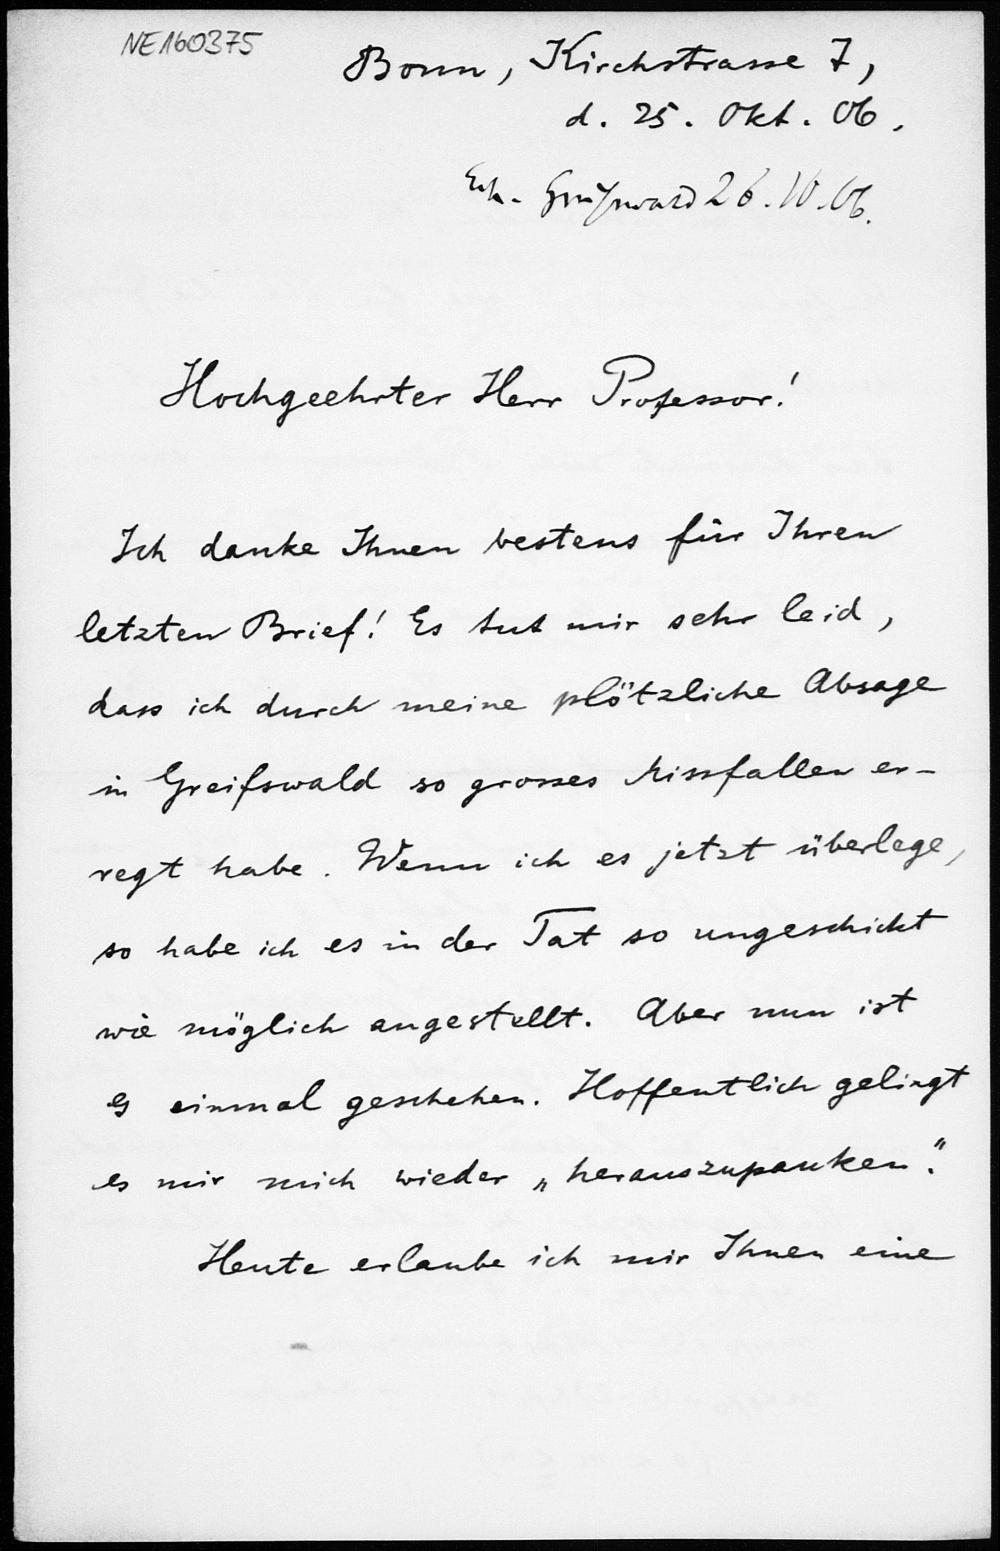 NE160375
Bonn, Kirchstrasse 7,
d. 25. Okt. 06.
Erh. Greifswald 26.10.06.
Hochgeehrter Herr Professor!
Ich danke Ihnen bestens für Ihren
letzten Brief! Es tut mir sehr leid,
dass ich durch meine plötzliche Absage
in Greifswald so grosses Missfallen er-
regt habe. Wenn ich es jetzt überlege,
so habe ich es in der Tat so ungeschickt
wie möglich angestellt. Aber nun ist
es einmal geschehen. Hoffentlich gelingt
es mir mich wieder „herauszupauken".
Heute erlaube ich mir Ihnen eine